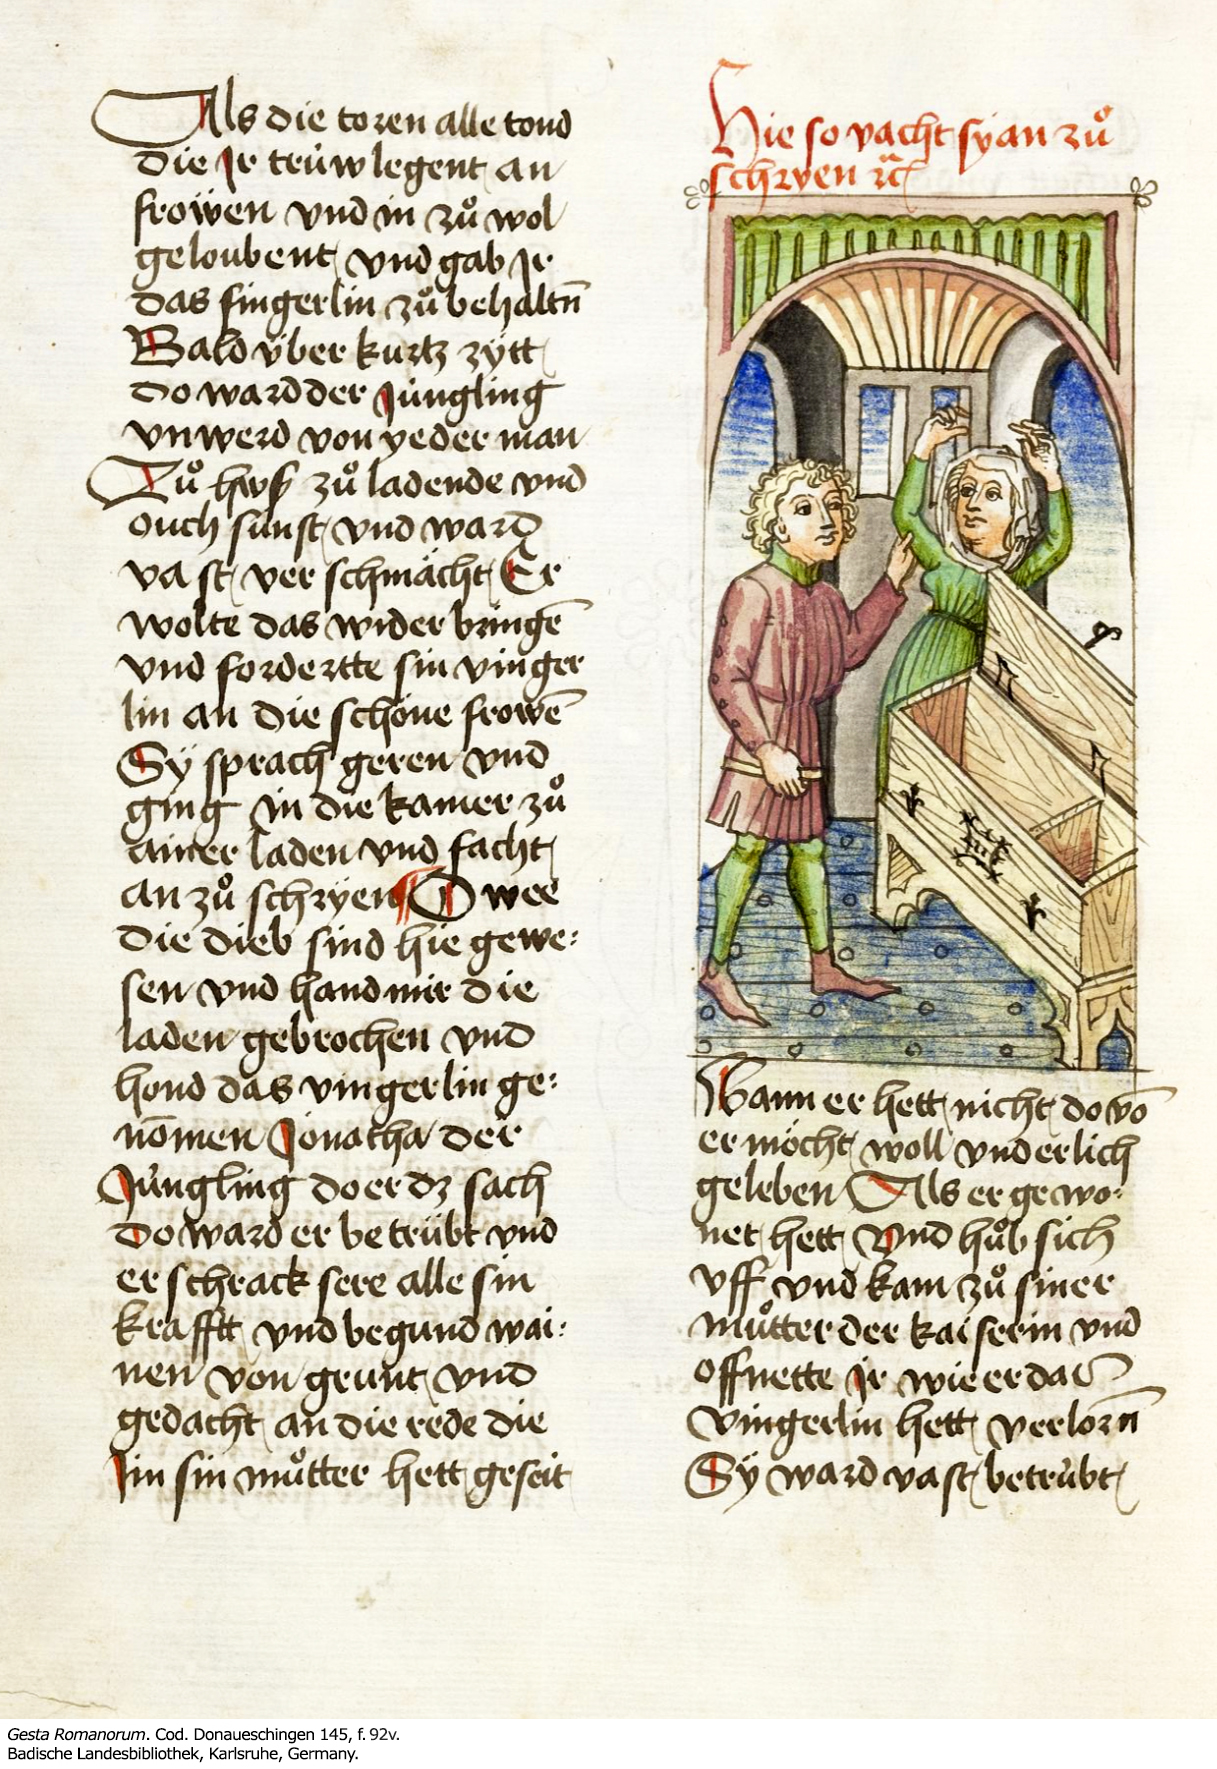 Als die toren alle tond
die Jr trüw legent an
frowen vnd in zuͦ wol
geloubent vnd gab Jr
das fingerlin zuͦ behaltn̄
Bald v́ber kurtz zytt
do ward der Jüngling
vnwerd von yeder man
Zuͦ hws zuͦ ladende vnd
ouch sunst vnd ward
vast ver schmächt Er
wolte das wider bringē
vnd fordertte sin vinger
lin an die schöne frowē
Sÿ sprach geren vnd
ging in die kamer zuͦ
ainer laden vnd facht
an zuͦ schryen O wee
die dieb sind hie gewe:
sen vnd hand mir die
laden gebrochen vnd
hond das vingerlin ge:
nōmen Jonatha der
Jüngling do er dz sach
do ward er betrübt vnd
erschrack sere alle sin
krafft vnd begund wai:
nen von grunt vnd
gedacht an die rede die
Jm sin muͦtter hett geseit
Hie so vacht sÿ an zuͦ
schryen ꝛc̄
Wann er hett nicht do vō
er möcht woll vnd erlich
geleben Als er gewo:
net hett Vnd huͦb sich
vff vnd kam zuͦ siner
muͦtter der kaiserin vnd
offnette Jr wie er das
vingerlin hett verlorn̄
Sÿ ward vast betrübt
Gesta Romanorum. Cod. Donaueschingen 145, f. 92v.
Badische Landesbibliothek, Karlsruhe, Germany.